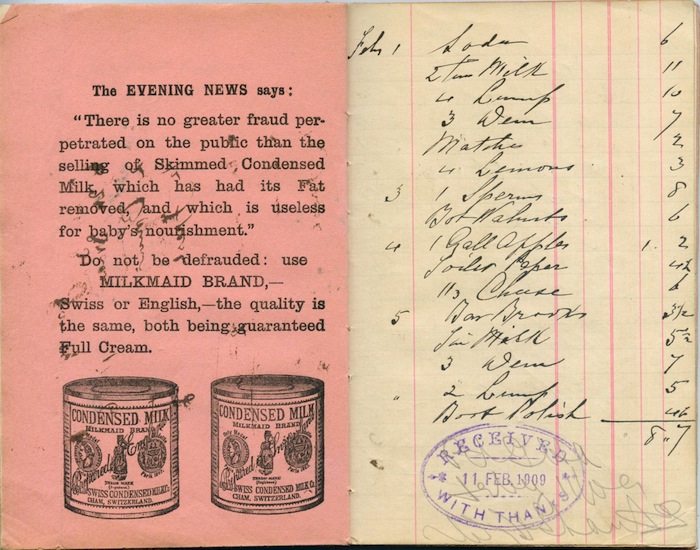 The EVENING NEWS says:
“There is no greater fraud per-
petrated on the public than the
selling of Skimmed Condensed
Milk, which has had its Fat
removed, and which is useless
for baby's nourishment.”
Do not be defrauded: use
MILKMAID BRAND,—
Swiss or English,—the quality is
the same, both being guaranteed
Full Cream.
CONDENSED MILK
MILKMAID BRAND
TRADE MARK
SWISS CONDENSED MILK Co.
CHAM, SWITZERLAND.
CONDENSED MILK
MILKMAID BRAND
TRADE MARK
SWISS CONDENSED MILK Co.
CHAM, SWITZERLAND.
Feby 1 Soda 6
2 Tins Milk 11
4 Lump 10
3 Dem 7
Matches 2
4 Lemons 3
3 1 Sperms 8
Bot Walnuts 6
4 1 Gall Apples 1. 2
Toilet Paper 4½
Cheese 6
5 Bar Brooks 3½
Tin Milk 5½
3 Dem 7
" 2 Lump 5
Boot Polish
8 " 7
RECEIVED
11 FEB 1909
WITH THANKS